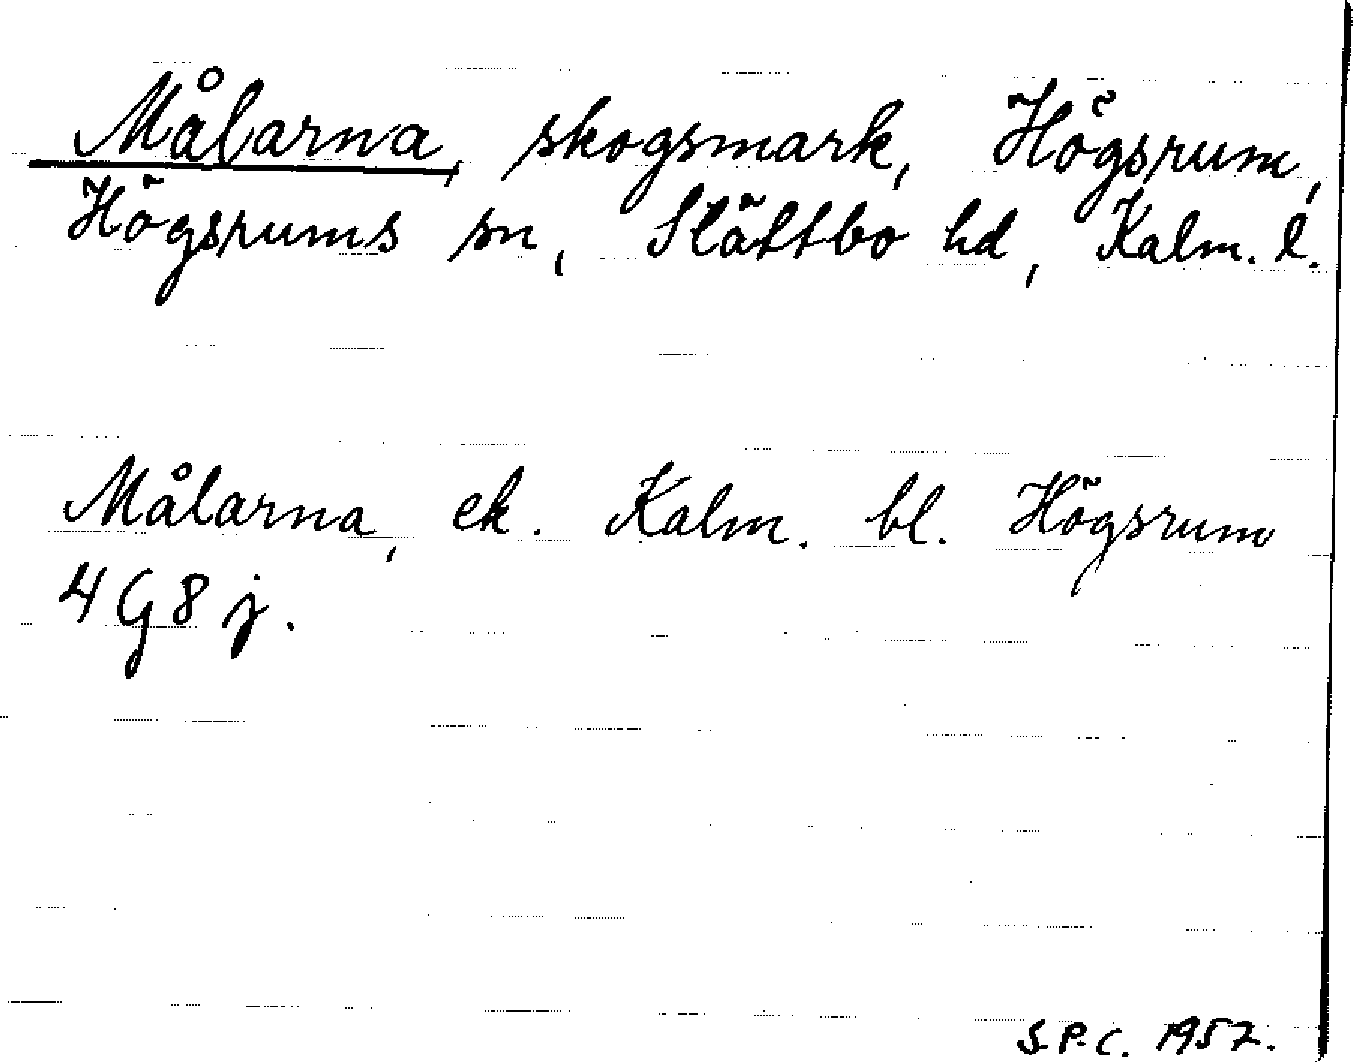 Målarna, skogsmark, Högsrum,
Högsrums sn, Slättbo hd, Kalm. l.
Målarna, ek. Kalm. bl. Högsrum
4 G 8 j.
S.P.C. 1957.